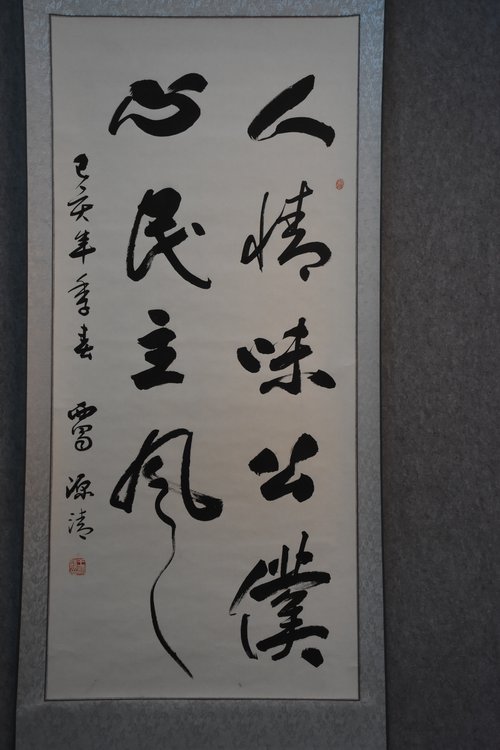 人情味公僕
心民主风
己亥年季春 源清